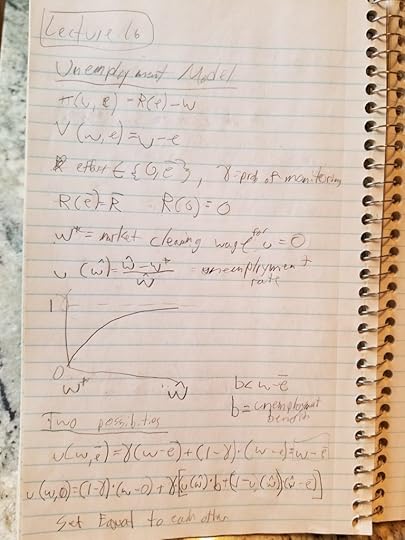 Lecture 16
Unemployment Model
π(w, e) = R(e) - w
V(w, e) = w - e
effort ∈ {0, e̅}, γ - prob of monitoring
R(e̅) = R̅ R(0) = 0
w* = market clearing wage for u = 0
u(ŵ) = (ŵ - w*)/ŵ unemployment rate
1
0
w* ŵ
b < w - e̅
b = unemployment benefit
Two possibilities
u(w, e̅) = γ(w - e̅) + (1 - γ) · (w - e̅) = w - e̅
u(w, 0) = (1 - γ) · (w - 0) + γ[u(ŵ) · b + (1 - u(ŵ))(ŵ - e̅)]
Set Equal to each other